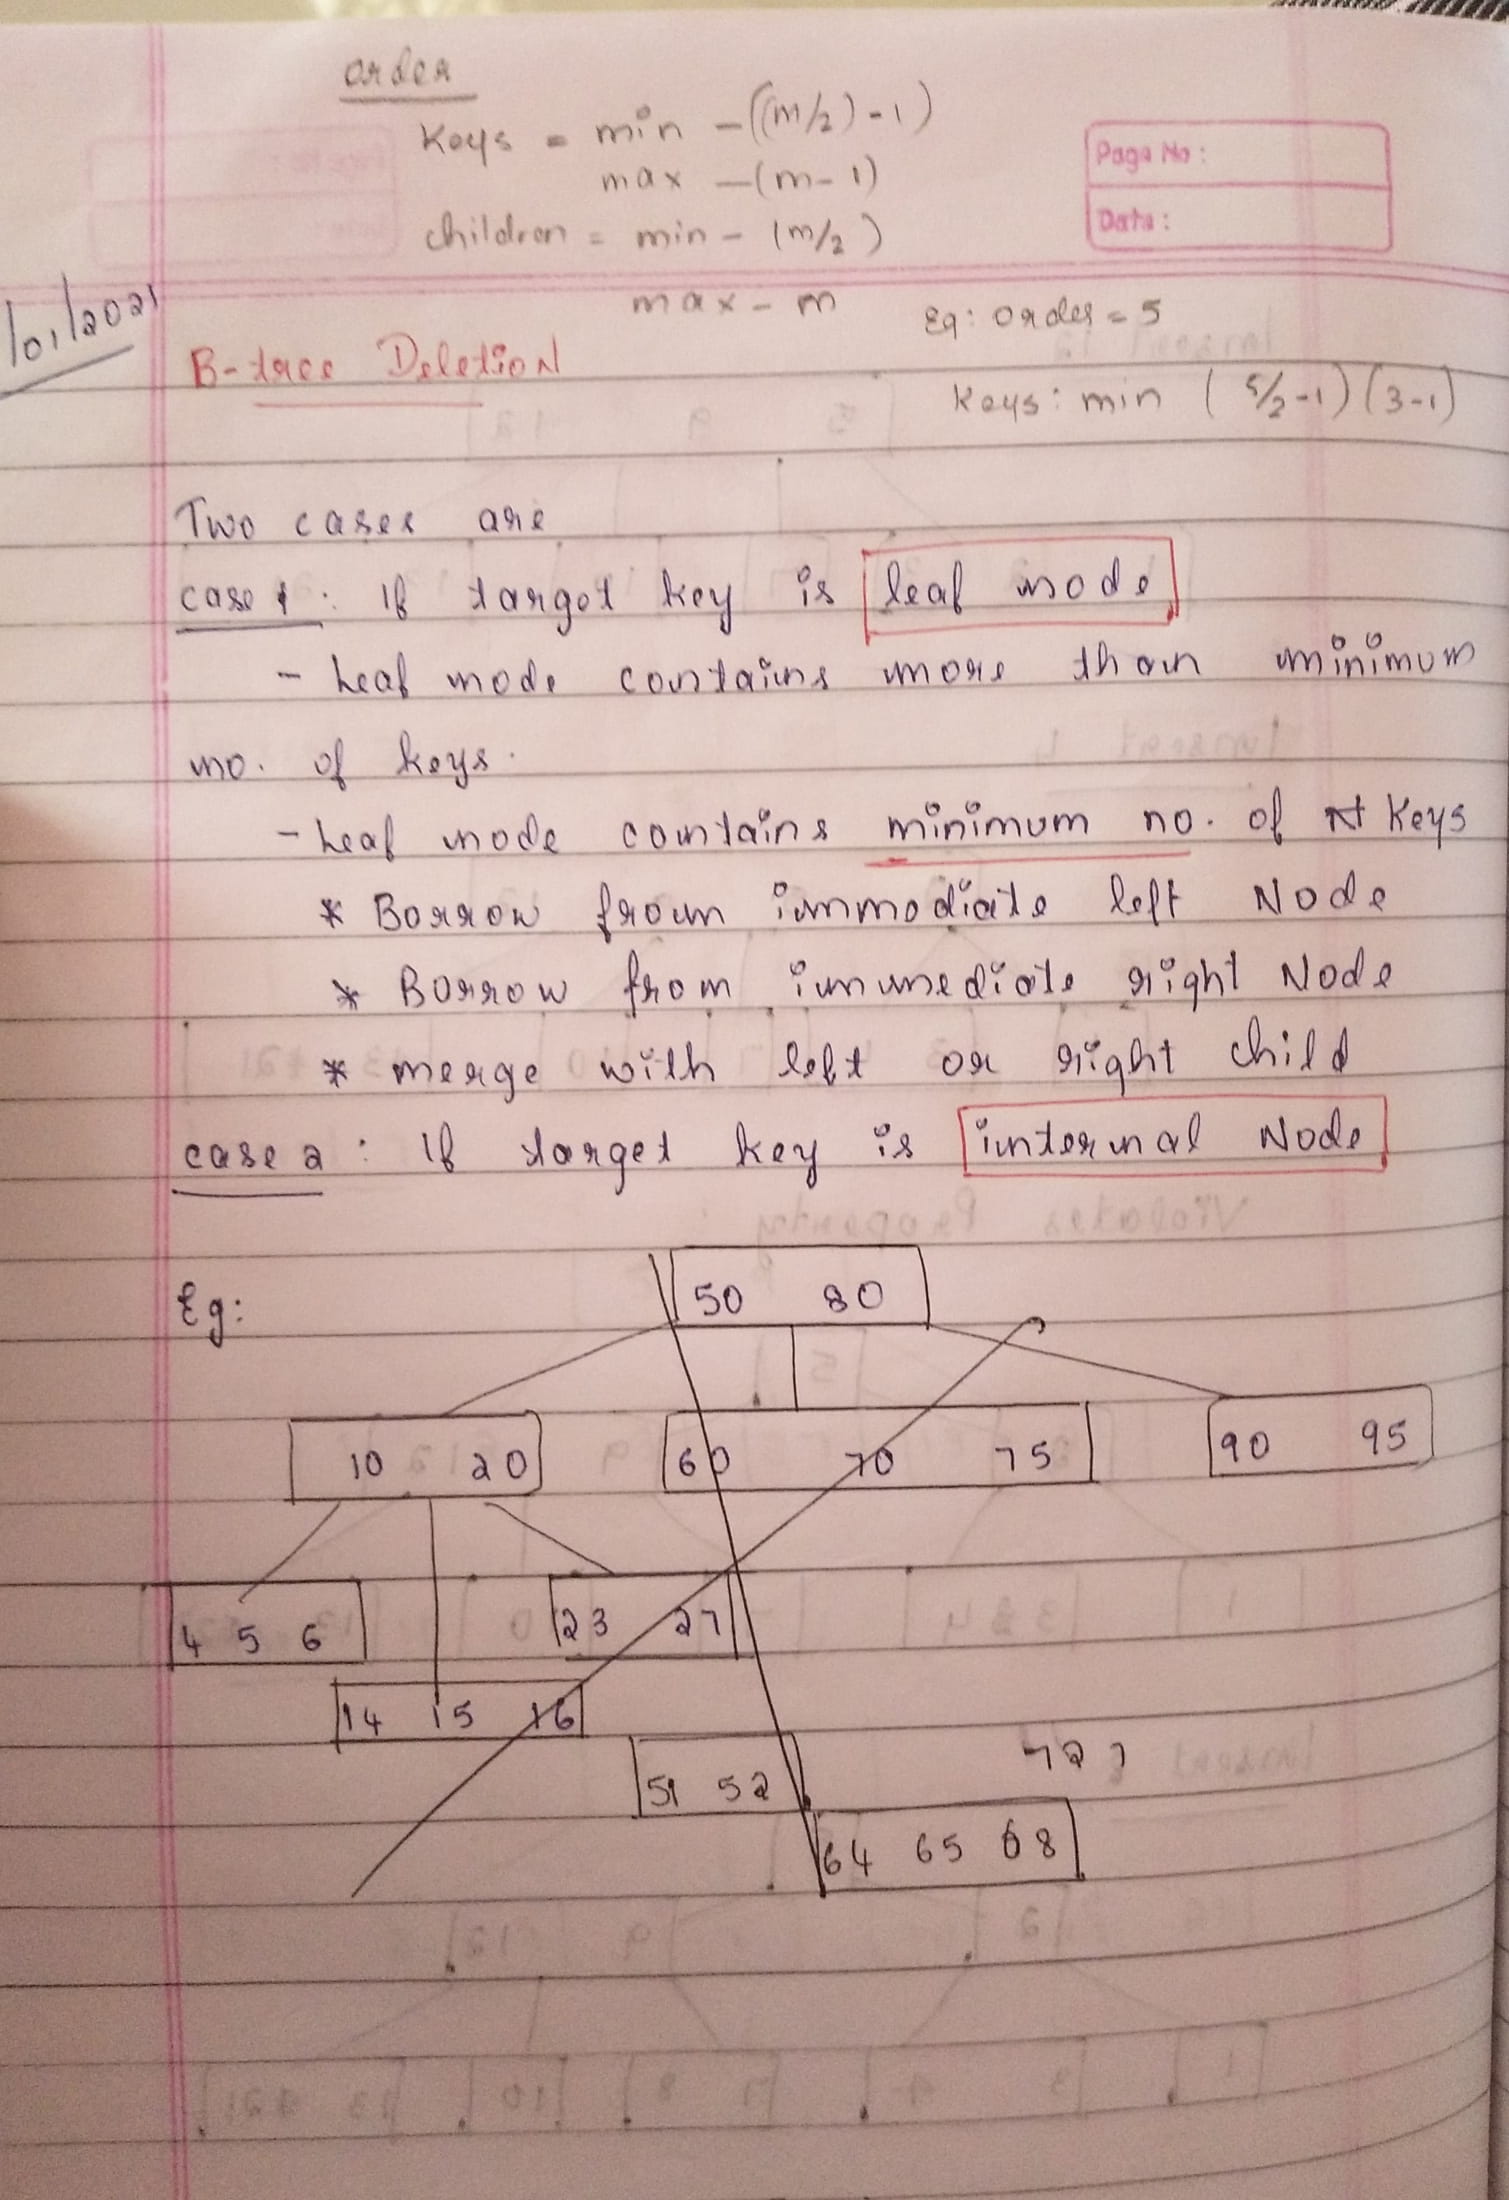 order
Keys = min - ((m/2) - 1)
max - (m - 1)
Page No :
children = min - (m/2)
Date :
max - m
/01/2021
Eg: order = 5
B-tree Deletion
Keys: min ( 5/2-1) (3-1)
Two cases are
case 1 : If target key is leaf node
- Leaf node contains more than minimum
no. of keys.
- Leaf node contains minimum no. of Keys
* Borrow from immediate left Node
* Borrow from immediate right Node
* merge with left or right child
case 2 : If target key is internal Node
Eg:
50 80
10 20
60 70 75
90 95
4 5 6
23 27
14 15 16
51 52
64 65 68